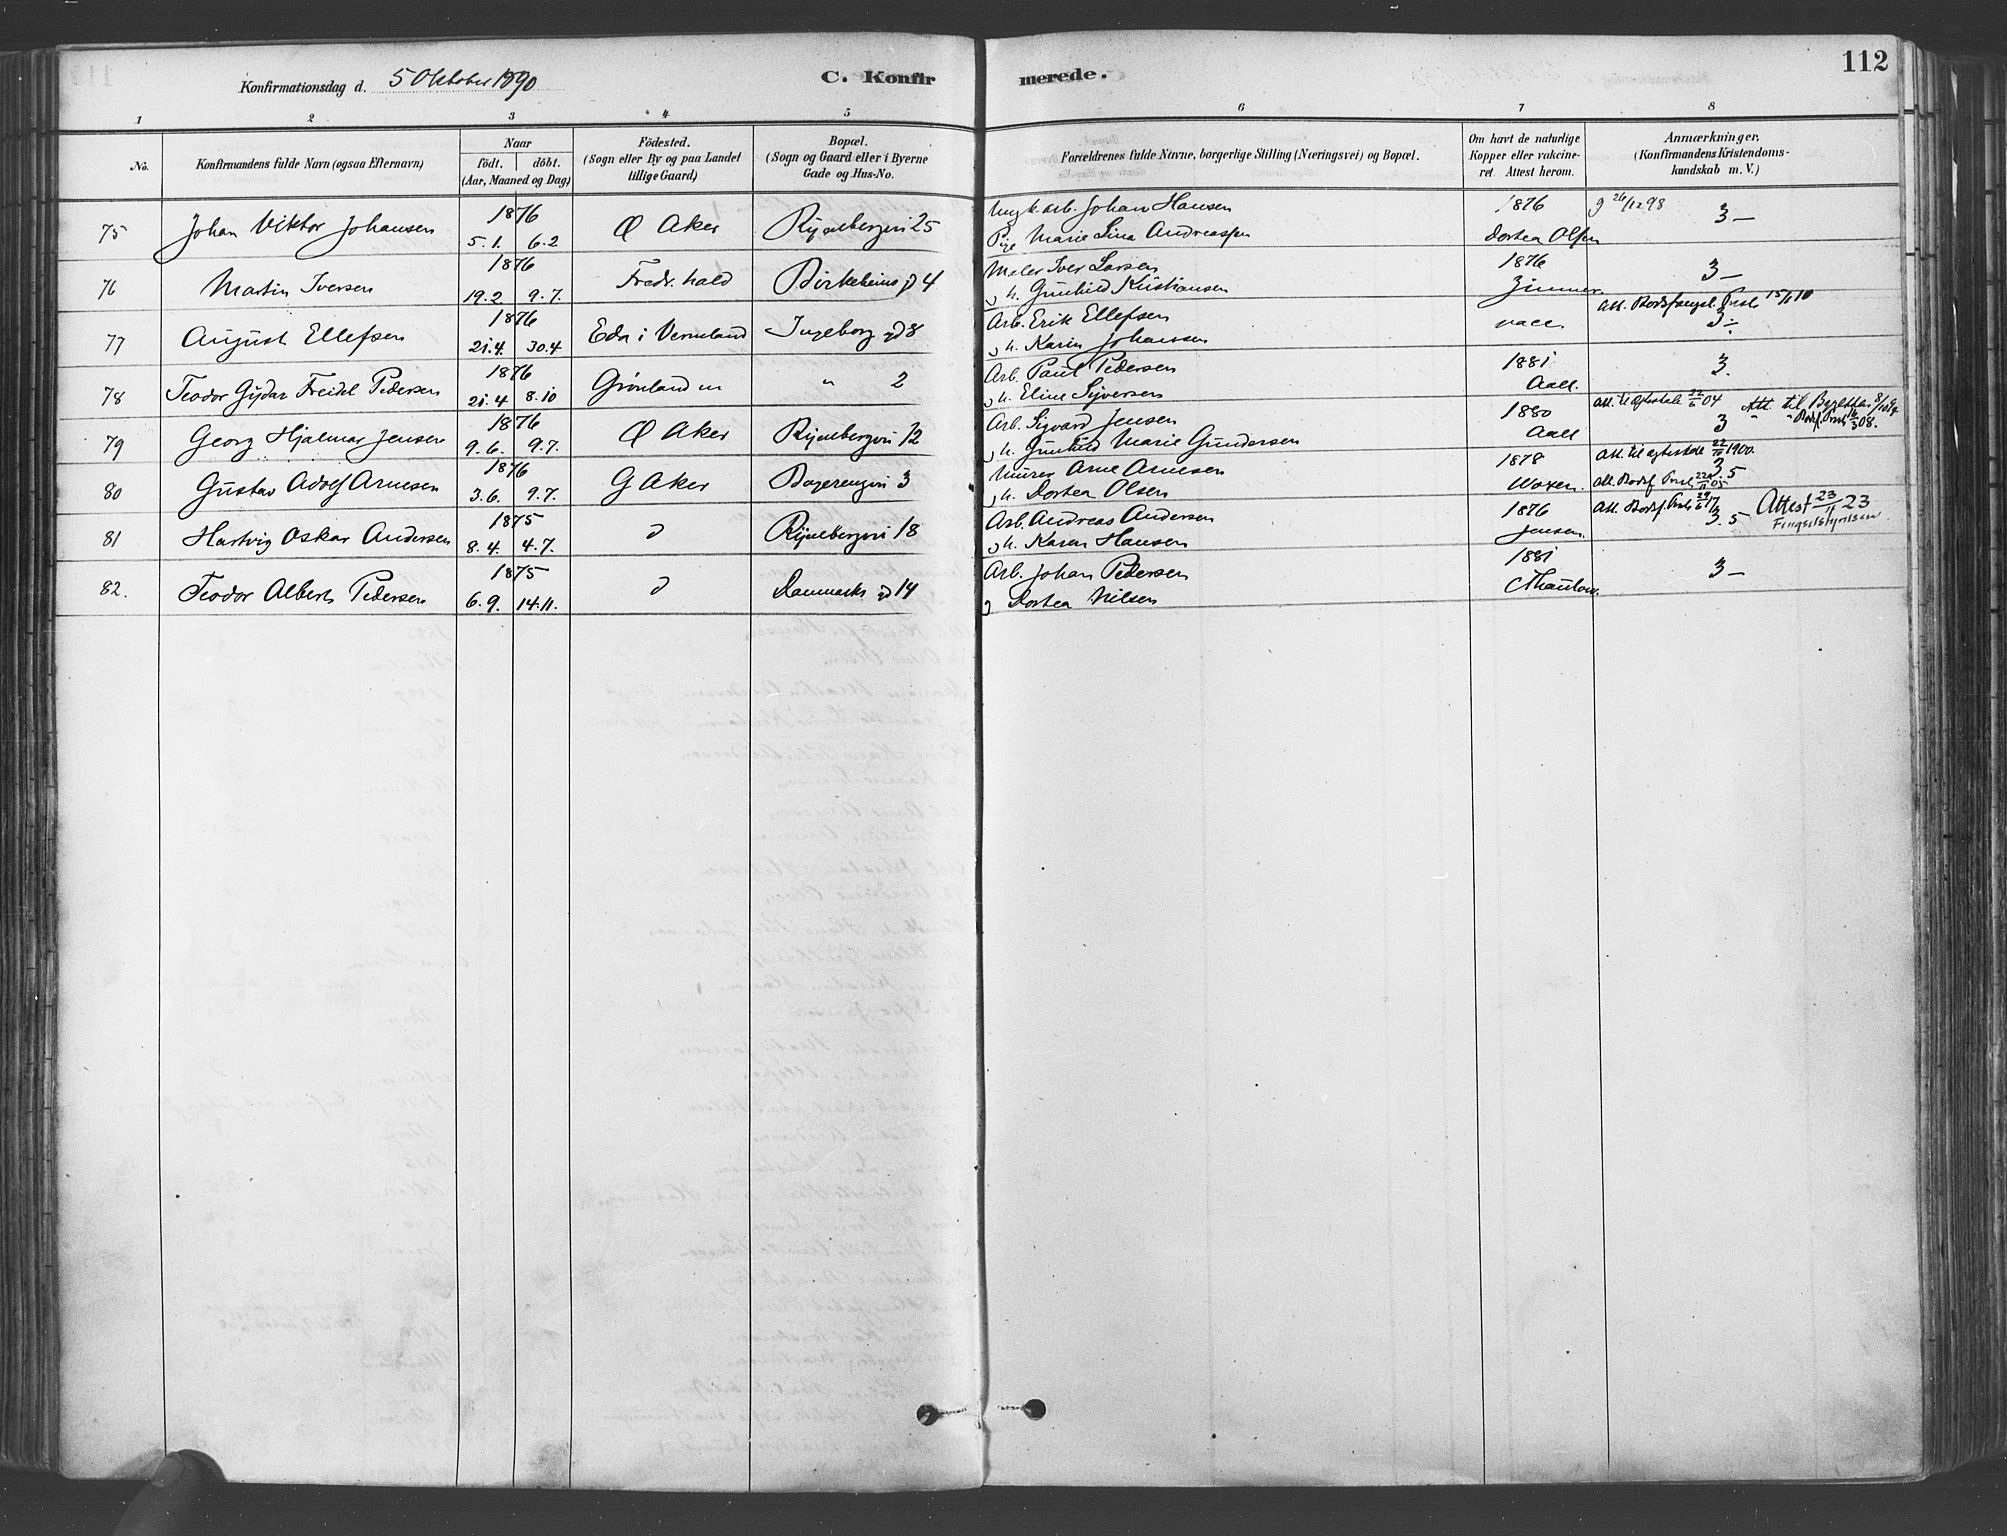 112
Konfirmationsdag d. 5 Oktober 1890 C. Konfirmerede.
1 2 3 4 5 6 7 8
No. Konfirmandens fulde Navn (ogsaa Efternavn) Naar født. døbt. (Aar, Maaned og Dag) Födested. (Sogn eller By og paa Landet tillige Gaard) Bopæl. (Sogn og Gaard eller i Byerne Gade og Hus-No. Forældrenes fulde Navne, borgerlige Stilling (Næringsvei) og Bopæl. Om havt de naturlige Kopper eller vakcineret. Attest herom. Anmærkninger, (Konfirmandens Kristendomskundskab m. V.)
1876 Johan Hansen 1876 g 26/12 98
75 Johan Viktor Johansen 5.1. 6.2 Ø Aker 25 Pige Marie Lina Andreassen Dortea Olsen 3 —
1876 Maler Iver Larsen 1876
76 Martin Iversen 19.2 9.7. Fredr.hald 4 Gunhild Kristiansen Zimmer 3 —
1876 Arb. Erik Ellefsen Att. Bodsfængsl. 15/1 10
77 August Ellefsen 21.4. 30.4 Eda i Vermland Ingeborg gd 8 Karin Johansen vacc 3 ÷
1876 Arb. Paul Pedersen 1881
78 Teodor Pedersen 21.4 8.10 Grønland " 2 Eline Syversen Aall. 3.
1876 Arb. Sigvard Jensen 1880 Att. til 22/6 04 Att. til 8/10 94
79 Georg Hjalmar Jensen 9.6. 9.7. Ø Aker 12 Gunhild Marie Gundersen Aall 3 16/3 08.
1876 Murer Arne Arnesen 1878 Att. til 22/10 1900.
80 Gustav Adolf Arnesen 3.6. 9.7. G Aker 3 Dortea Olsen Waxen. 3 5 Att. Bodsf. 22/11 05
1875 Arb. Andreas Andersen 1876 Att. Bodsf. 17 Attest 23/11 23
81 Hartvig Oskar Andersen 8.4. 4.7. d 18 Karen Hansen Jensen. 3.5 Fengselstyrelsen
1875 Arb. Johan Pedersen 1881
82. Teodor Alberts Pedersen 6.9. 14.11. d Danmarks gd 14 Dortea Nilsen Thaulow. 3 —